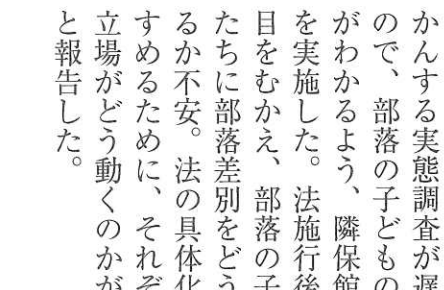 かんする実態調査が遅
ので、部落の子どもの
がわかるよう、隣保館
を実施した。法施行後
目をむかえ、部落の子
たちに部落差別をどう
るか不安。法の具体化
すめるために、それぞ
立場がどう動くのかが
と報告した。